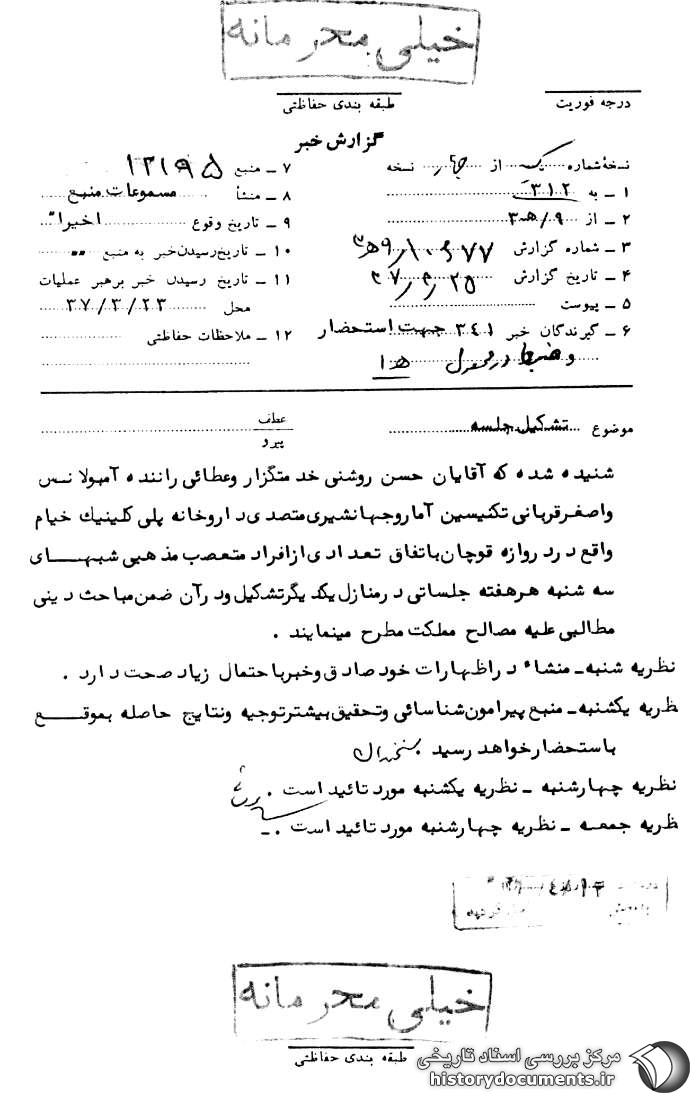 خیلی محرمانه
درجه فوریت
طبقه بندی حفاظتی
گزارش خبر
نسخهٔ شماره یک از چهار نسخه
۱ ـ به ۳۱۲
۲ ـ از ۹/ه‍ ۳
۳ ـ شماره گزارش
۴ ـ تاریخ گزارش
۵ ـ پیوست
۶ ـ گیرندگان خبر ۳۴۱ جهت استحضار
۷ ـ منبع ۱۲۱۹۵
۸ ـ منشأ مسموعات منبع
۹ ـ تاریخ وقوع اخیراً
۱۰ ـ تاریخ رسیدن خبر به منبع ""
۱۱ ـ تاریخ رسیدن خبر برهبر عملیات
محل ۳۷/۳/۲۳
۱۲ ـ ملاحظات حفاظتی
موضوع تشکیل جلسه
عطف
پیرو
شنیده شده که آقایان حسن روشنی خدمتگزار وعطائی راننده آمبولانس
واصغرقربانی تکنیسین آماروجهانشیری متصدی داروخانه پلی کلینیک خیام
واقع در دروازه قوچان باتفاق تعدادی ازافراد متعصب مذهبی شبهای
سه شنبه هرهفته جلساتی درمنازل یکدیگرتشکیل ودرآن ضمن مباحث دینی
مطالبی علیه مصالح مملکت مطرح مینمایند .
نظریه شنبه ـ منشاء در اظهارات خود صادق وخبرباحتمال زیاد صحت دارد .
ظریه یکشنبه ـ منبع پیرامون شناسائی وتحقیق بیشترتوجیه ونتایج حاصله بموقع
باستحضارخواهد رسید .
نظریه چهارشنبه ـ نظریه یکشنبه مورد تائید است .
ظریه جمعه ـ نظریه چهارشنبه مورد تائید است . ـ
خیلی محرمانه
طبقه بندی حفاظتی
مرکز بررسی اسناد تاریخی
historydocuments.ir